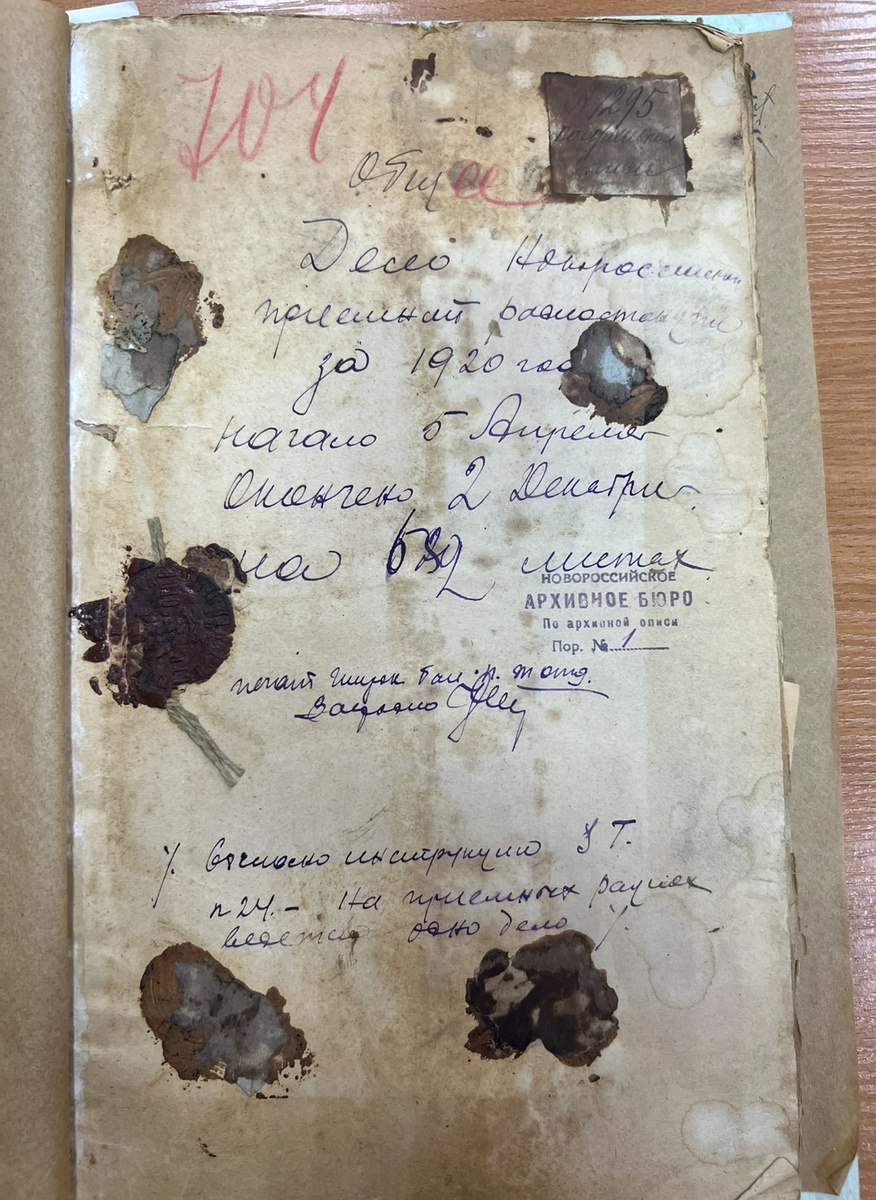 704
№ 1295
Общее
Дело Новороссийской
приемной радиостанции
за 1920 год
Начало 5 Апреля
Окончено 2 Декабря
на листах
НОВОРОССИЙСКОЕ
АРХИВНОЕ БЮРО
По архивной описи
Пор. № 1
печат
%. Согласно инструкции УТ.
п 24. – На приемных рациях
ведется одно дело %.